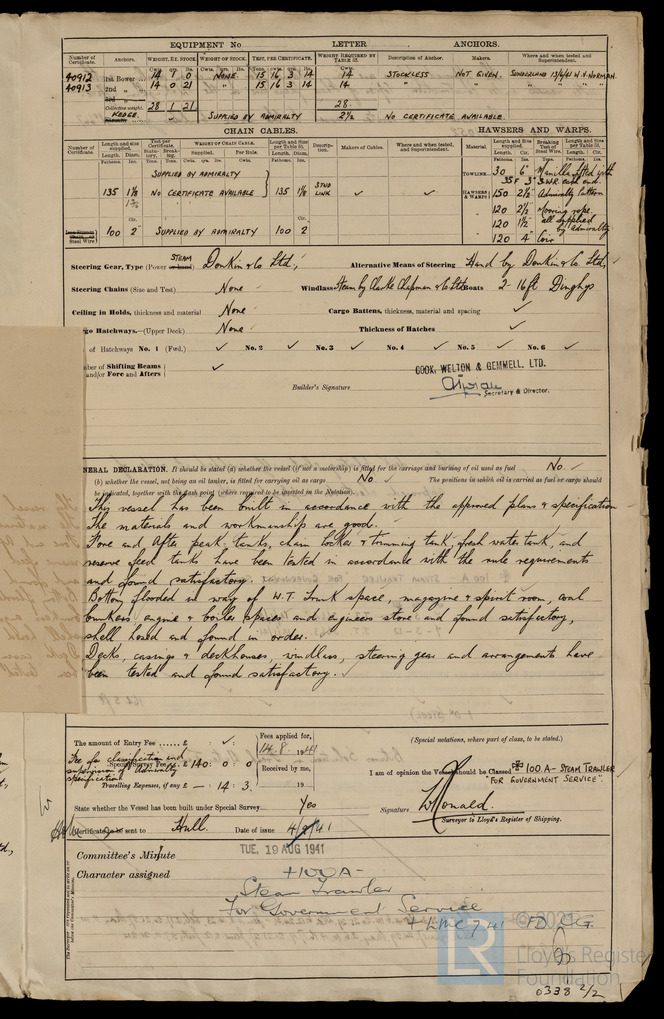 EQUIPMENT No LETTER ANCHORS.
Number of Certificate. Anchors. WEIGHT, EX. STOCK. WEIGHT OF STOCK. TEST, PER CERTIFICATE. WEIGHT REQUIRED BY TABLE 53. Description of Anchor. Makers. Where and when tested and Superintendent.
40912 1st Bower 14 9 0 NONE 15 16 3 14 14 STOCKLESS NOT GIVEN. SUNDERLAND 13/6/41 W.H. NORMAN.
40913 2nd „ 14 0 21 " 15 16 3 14 14 " " " "
3rd „
Collective weight. 28 1 21 28.
KEDGE. SUPPLIED BY ADMIRALTY 2½ NO CERTIFICATE AVAILABLE.
CHAIN CABLES. HAWSERS AND WARPS.
Number of Certificate. Length and size supplied. Test per Certificate WEIGHT OF CHAIN CABLE. Length and size per Table 53. Description. Makers of Cables. Where and when tested, and Superintendent. Material. Length and Size supplied. Breaking Test of Steel Wire. Length and Size per Table 53.
Length. Diam. Statutory. Breaking. Supplied. Per Rule. Length. Diam. Length. Cir. Length. Cir.
SUPPLIED BY ADMIRALTY TOWLINE 30 6" Manilla fitted with
35F 3" S.W.R. each end.
135 1⅛ NO CERTIFICATE AVAILABLE 135 1⅛ STUD LINK HAWSERS & WARPS 150 2½" Admiralty Pattern
" 120 2½" Mooring rope.
" 120 1½" all supplied by admiralty
Steel Wire 100 2" SUPPLIED BY ADMIRALTY 100 2 " 120 4" Coir
Steering Gear, Type (Power or hand) STEAM Donkin & Co Ltd, Alternative Means of Steering Hand by Donkin & Co Ltd,
Steering Chains (Size and Test) None Windlass Steam by Clarke Chapman & Co Ltd Boats 2- 16ft Dinghys
Ceiling in Holds, thickness and material None Cargo Battens, thickness, material and spacing
go Hatchways.—(Upper Deck) None Thickness of Hatches
of Hatchways No. 1 (Fwd.) No. 2 No. 3 No. 4 No. 5 No. 6
ber of Shifting Beams and/or Fore and Afters
COOK, WELTON & GEMMELL, LTD.
Builder's Signature Secretary & Director.
NERAL DECLARATION. It should be stated (a) whether the vessel (if not a motorship) is fitted for the carriage and burning of oil used as fuel No.
(b) whether the vessel, not being an oil tanker, is fitted for carrying oil as cargo No The positions in which oil is carried as fuel or cargo should
be indicated, together with the flash point (where required to be inserted in the Notation).
This vessel has been built in accordance with the approved plans & specification
The materials and workmanship are good.
Fore and After peak tanks, chain locker & trimming tank, fresh water tank, and
reserve feed tanks have been tested in accordance with the rule requirements
and found satisfactory.
Bottom flooded in way of W.T. Trunk space, magazine & spirit room, coal
bunkers, engine & boiler spaces and engineers store and found satisfactory,
shell hosed and found in order.
Decks, casings & deckhouses, windlass, steering gear and arrangements have
been tested and found satisfactory.
The amount of Entry Fee ...... £ Fees applied for, 14.8.1941 (Special notations, where part of class, to be stated.)
Fee for classification and supervision of Admiralty specification
Special Survey Fee £ 140: 0: 0 Received by me,
Travelling Expenses, if any £ — : 14: 3. 19
I am of opinion the Vessel should be Classed ✠ 100.A- STEAM TRAWLER "FOR GOVERNMENT SERVICE".
State whether the Vessel has been built under Special Survey Yes
Signature
Surveyor to Lloyd's Register of Shipping.
Certificate to be sent to Hull. Date of issue 4/9/41
Committee's Minute TUE. 19 AUG 1941
Character assigned +100A-
Steam Trawler
For Government Service
+ LMC 7.41 FD CG.
© 2021
LR
Lloyd's Register
Foundation
0338 2/2